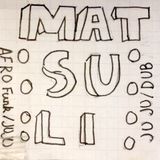 MAT
SU
LI
AFRO Funk/JUJU
JU JU/DUB